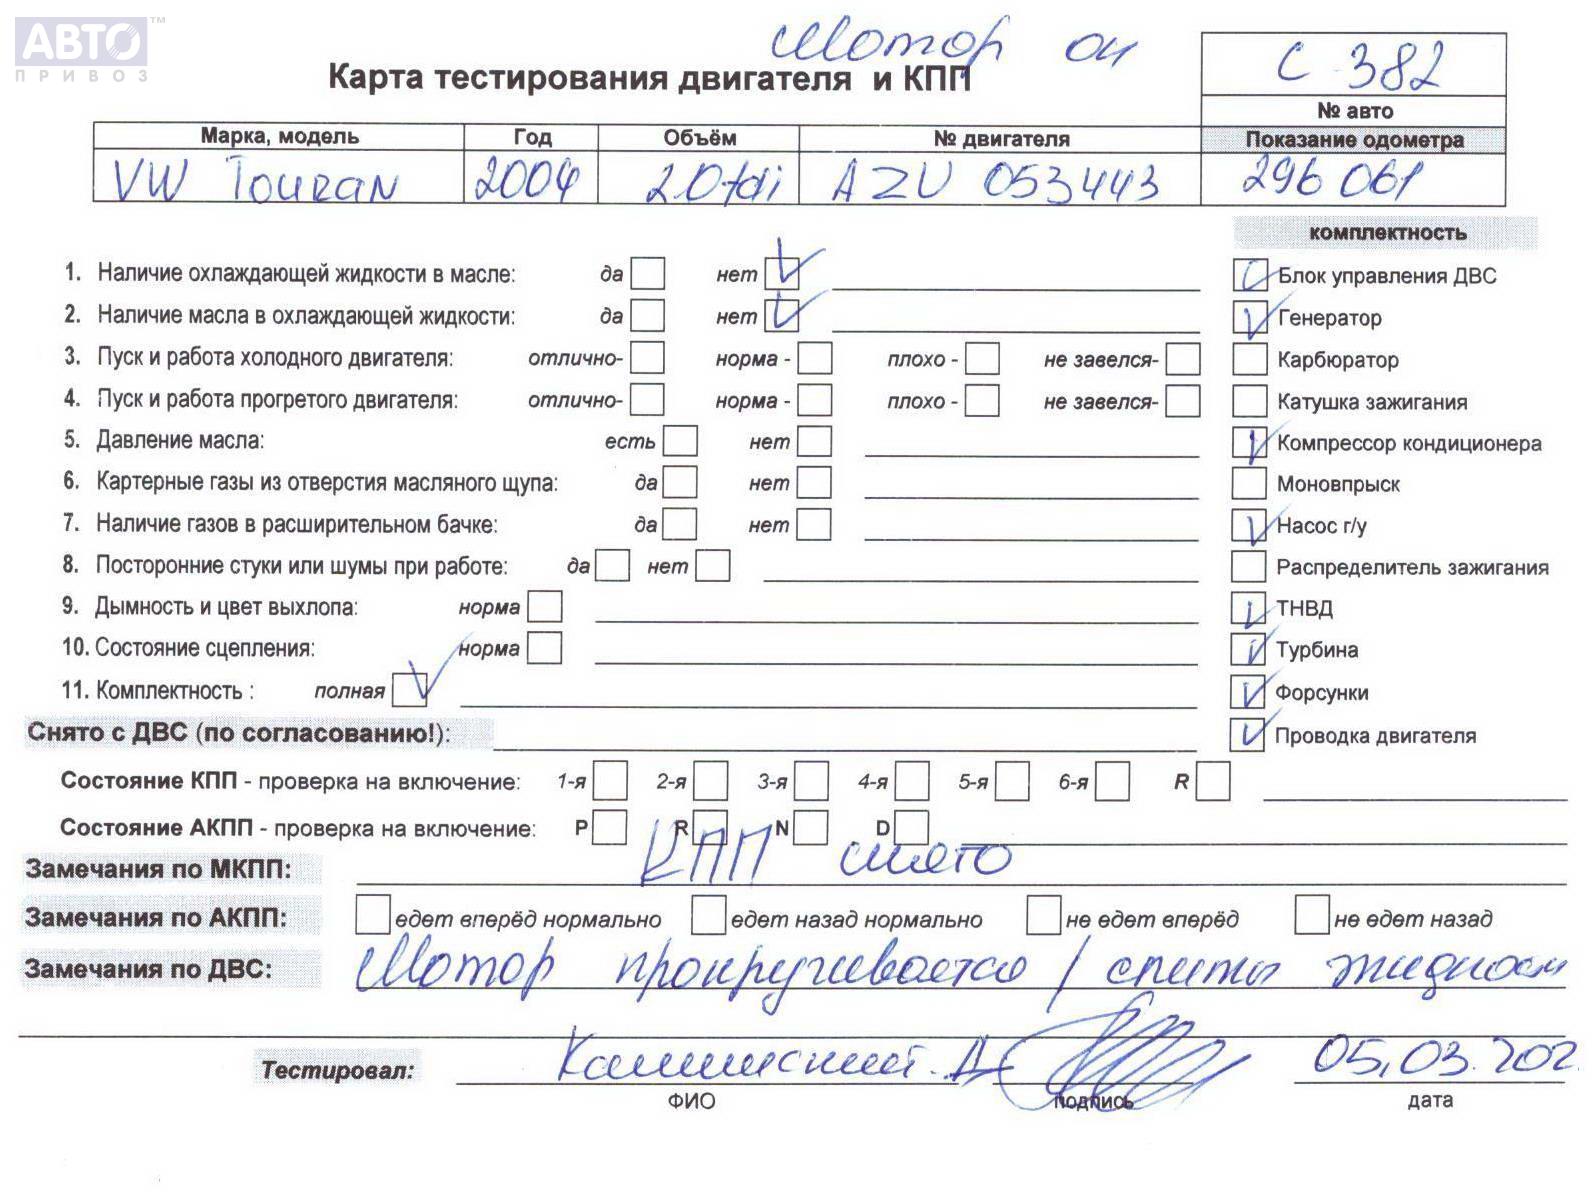 АВТО™
ПРИВОЗ
Мотор ок
Карта тестирования двигателя и КПП
С 382
№ авто
Марка, модель Год Объём № двигателя Показание одометра
VW Touran 2004 2.0tdi AZV 053443 296 061
комплектность
1. Наличие охлаждающей жидкости в масле: да нет
Блок управления ДВС
2. Наличие масла в охлаждающей жидкости: да нет
Генератор
3. Пуск и работа холодного двигателя: отлично- норма - плохо - не завелся-
Карбюратор
4. Пуск и работа прогретого двигателя: отлично- норма - плохо - не завелся-
Катушка зажигания
5. Давление масла: есть нет
Компрессор кондиционера
6. Картерные газы из отверстия масляного щупа: да нет
Моновпрыск
7. Наличие газов в расширительном бачке: да нет
Насос г/у
8. Посторонние стуки или шумы при работе: да нет
Распределитель зажигания
9. Дымность и цвет выхлопа: норма
ТНВД
10. Состояние сцепления: норма
Турбина
11. Комплектность : полная
Форсунки
Снято с ДВС (по согласованию!):
Проводка двигателя
Состояние КПП - проверка на включение: 1-я 2-я 3-я 4-я 5-я 6-я R
Состояние АКПП - проверка на включение: P R N D
Замечания по МКПП: КПП снято
Замечания по АКПП: едет вперёд нормально едет назад нормально не едет вперёд не едет назад
Замечания по ДВС: Мотор прокручивается / слиты
Тестировал: 05.03.202
ФИО подпись дата